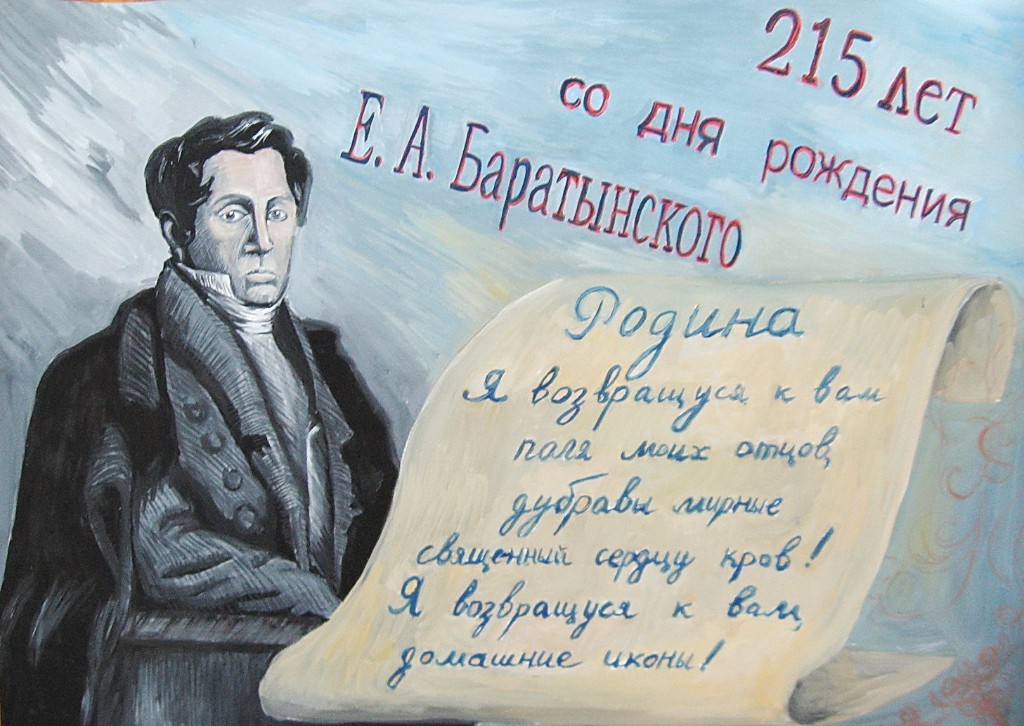 215 лет
со дня рождения
Е. А. Баратынского
Родина
Я возвращуся к вам
поля моих отцов,
дубравы мирные
священный сердцу кров!
Я возвращуся к вам,
домашние иконы!